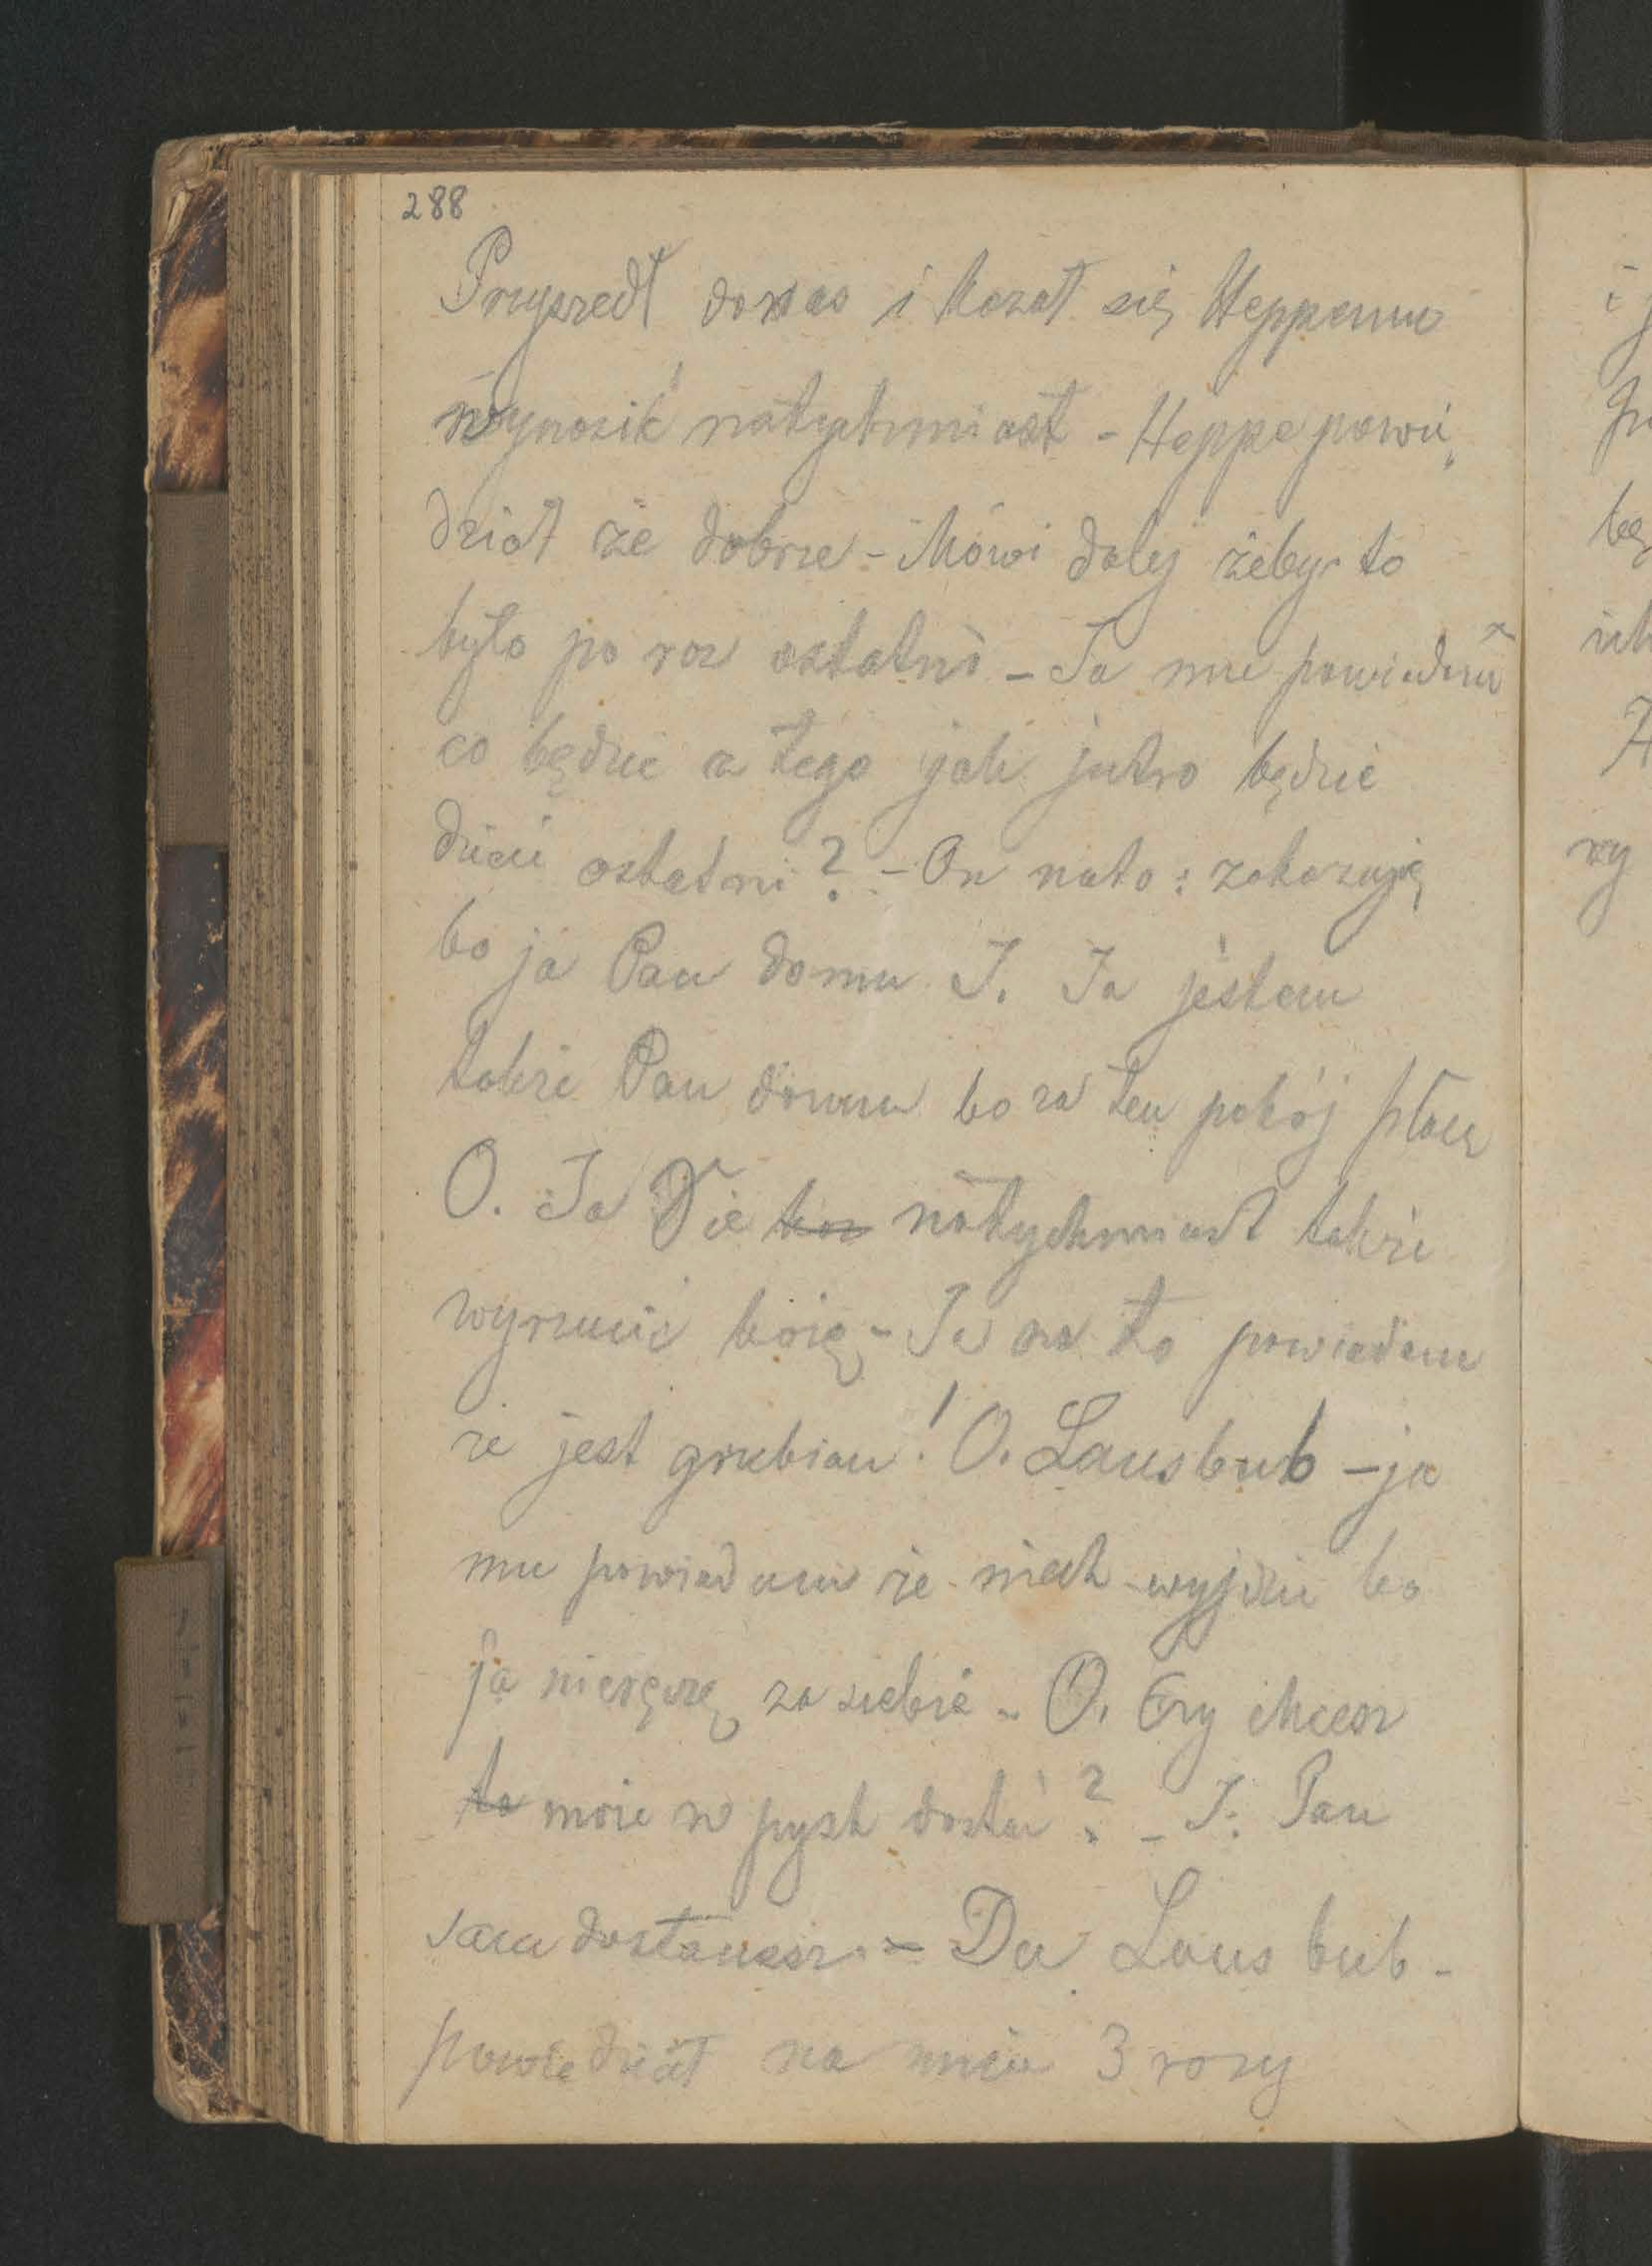 288
Przyszedł donas i kazał się Heppemu
wynosić natychmiast - Heppe powie„
dział że dobrze - Mówi dalej żeby to
było po raz ostatni - Ja mu powiadam
co będzie z tego jak jutro będzie
dzień ostatni? - On nato: zakazuję
bo ja Pan domu J. Ja jestem
także Pan domu bo za ten pokój płacę
O. Ja Cie natychmiast także
wyrzucić każę - Ja na to powiadam
że jest grubian! O. Lausbub - ja
mu powiadam że niech wyjdzie bo
ja nieręczę za siebie - O. Czy chcesz
to może w pysk dostać? - J: Pan
sam dostaniesz - Du Lausbub -
powiedział na mnie 3 razy
i
be
H